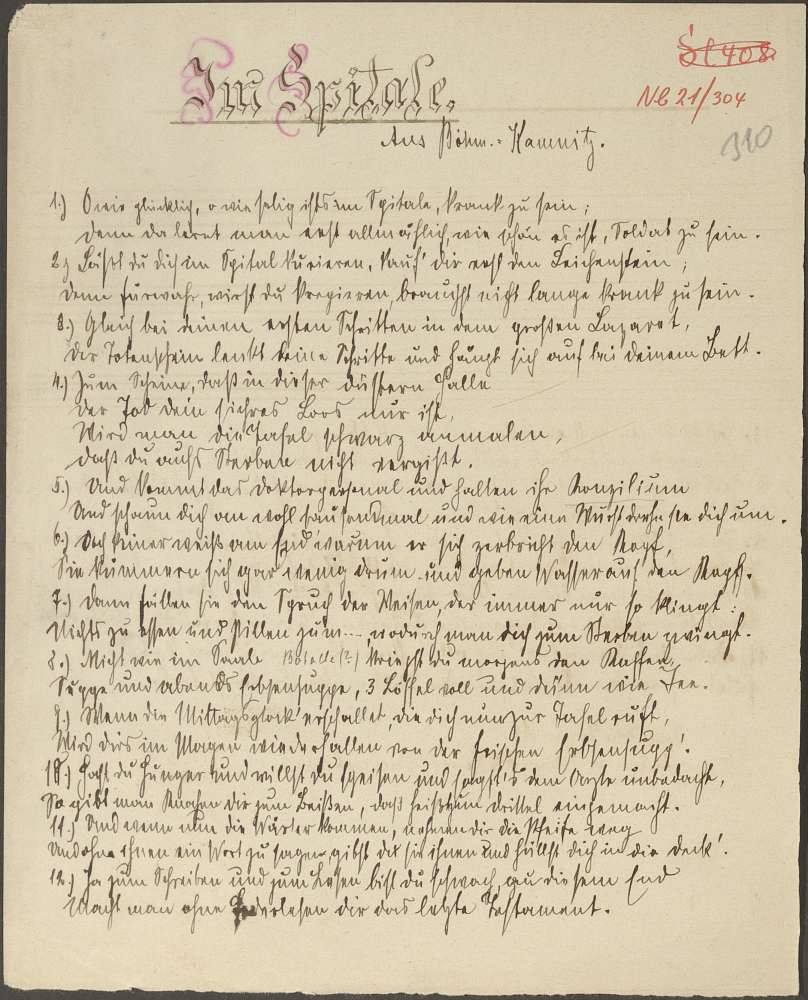 Im Spitale.
Sl 408.
Nb 21/304
310
Aus Böhm.-Kamnitz.
1.) O wie glücklich, o wie selig ists im Spitale, krank zu sein;
denn da lernt man erst allmählich, wie schön es ist, Soldat zu sein.
2.) Läßt du dich im Spital kurieren, kauf' dir erst den Leichenstein;
denn fürwahr, wirst du krepieren, brauchst nicht lange krank zu sein.
3.) Gleich bei deinen ersten Schritten in dem großen Lazaret,
der Totenschein lenkt deine Schritte und hängt sich auf bei deinem Bett.
4.) Zum Scheine, daß in dieser düstern Halle
der Tod dein sichres Loos nur ist,
Wird man die Tafel schwarz anmalen,
daß du aufs Sterben nicht vergißt.
5.) Und kommt das Doktorpersonal und halten ihr Konzilium
Und schaun dich an wohl tausendmal und wie eine Wurst drehn sie dich um.
6.) Doch keiner weiß am End' warum er sich zerbricht den Kopf,
Sie kümmern sich gar wenig drum und geben Wasser auf den Kopf.
7.) Dann fällen sie den Spruch der Weisen, der immer nur so klingt:
Nichts zu essen und Pillen zum..., wodurch man dich zum Sterben zwingt.
8.) Nicht wie im Saale (?) kriegst du morgens den Kaffee,
Suppe und abends Erbsensuppe, 3 Löffel voll und dünn wie Tee.
9.) Wenn die Mittagsglock' erschallet, die dich nun zur Tafel ruft,
Wird dirs im Magen wiederhallen von der frischen Erbsensupp'.
10.) Hast du Hunger und willst du speisen und sagst's dem Arzte unbedacht,
So gibt man Knochen dir zum Beißen, das heißt zum drittel eingemacht.
11.) Und wenn nun die Wärter kommen, nehmen dir die Pfeife weg
Und ohne ihnen ein Wort zu sagen, gibst du sie ihnen und hüllst dich in die Deck'.
12.) Ja zum Schreiben und zum Lesen bist du schwach, zu diesem End
Macht man ohne Federlesen dir das letzte Testament.